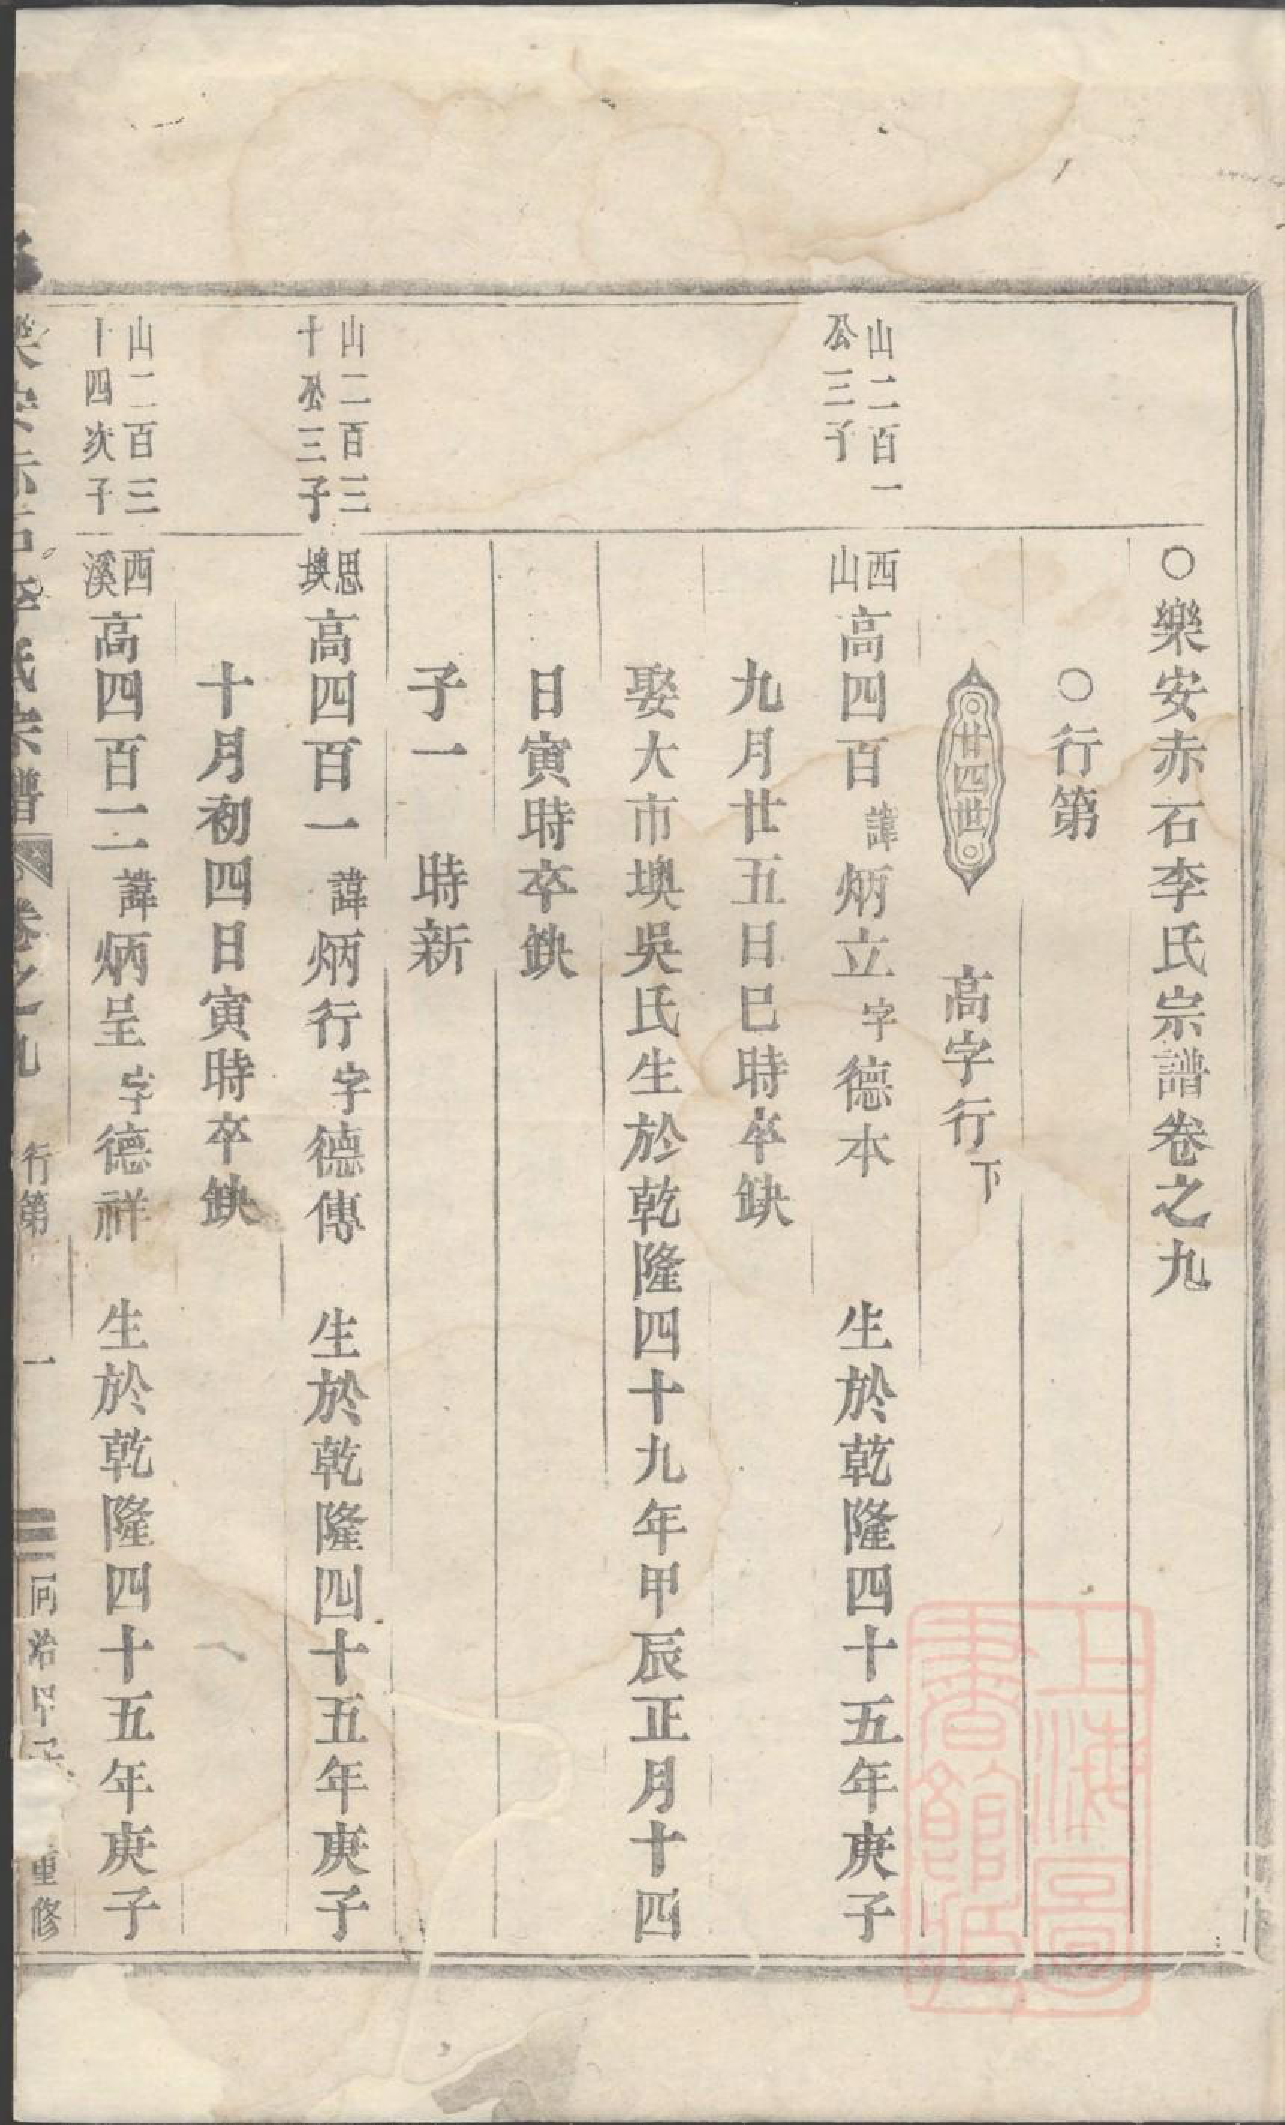 ○樂安赤石李氏宗譜卷之九
○行第
廿四世
高字行下
山二百一
公三子
西山高四百諱炳立字德本 生於乾隆四十五年庚子
九月廿五日巳時卒缺
娶大市墺吳氏生於乾隆四十九年甲辰正月十四
日寅時卒缺
子一 時新
山二百三
十公三子
思墺高四百一諱炳行字德傳 生於乾隆四十五年庚子
十月初四日寅時卒缺
山二百三
十四次子
西溪高四百二諱炳呈字德祥 生於乾隆四十五年庚子
樂安赤石李氏宗譜 卷之九 行第 一 同治甲子重修
上海圖
書館藏